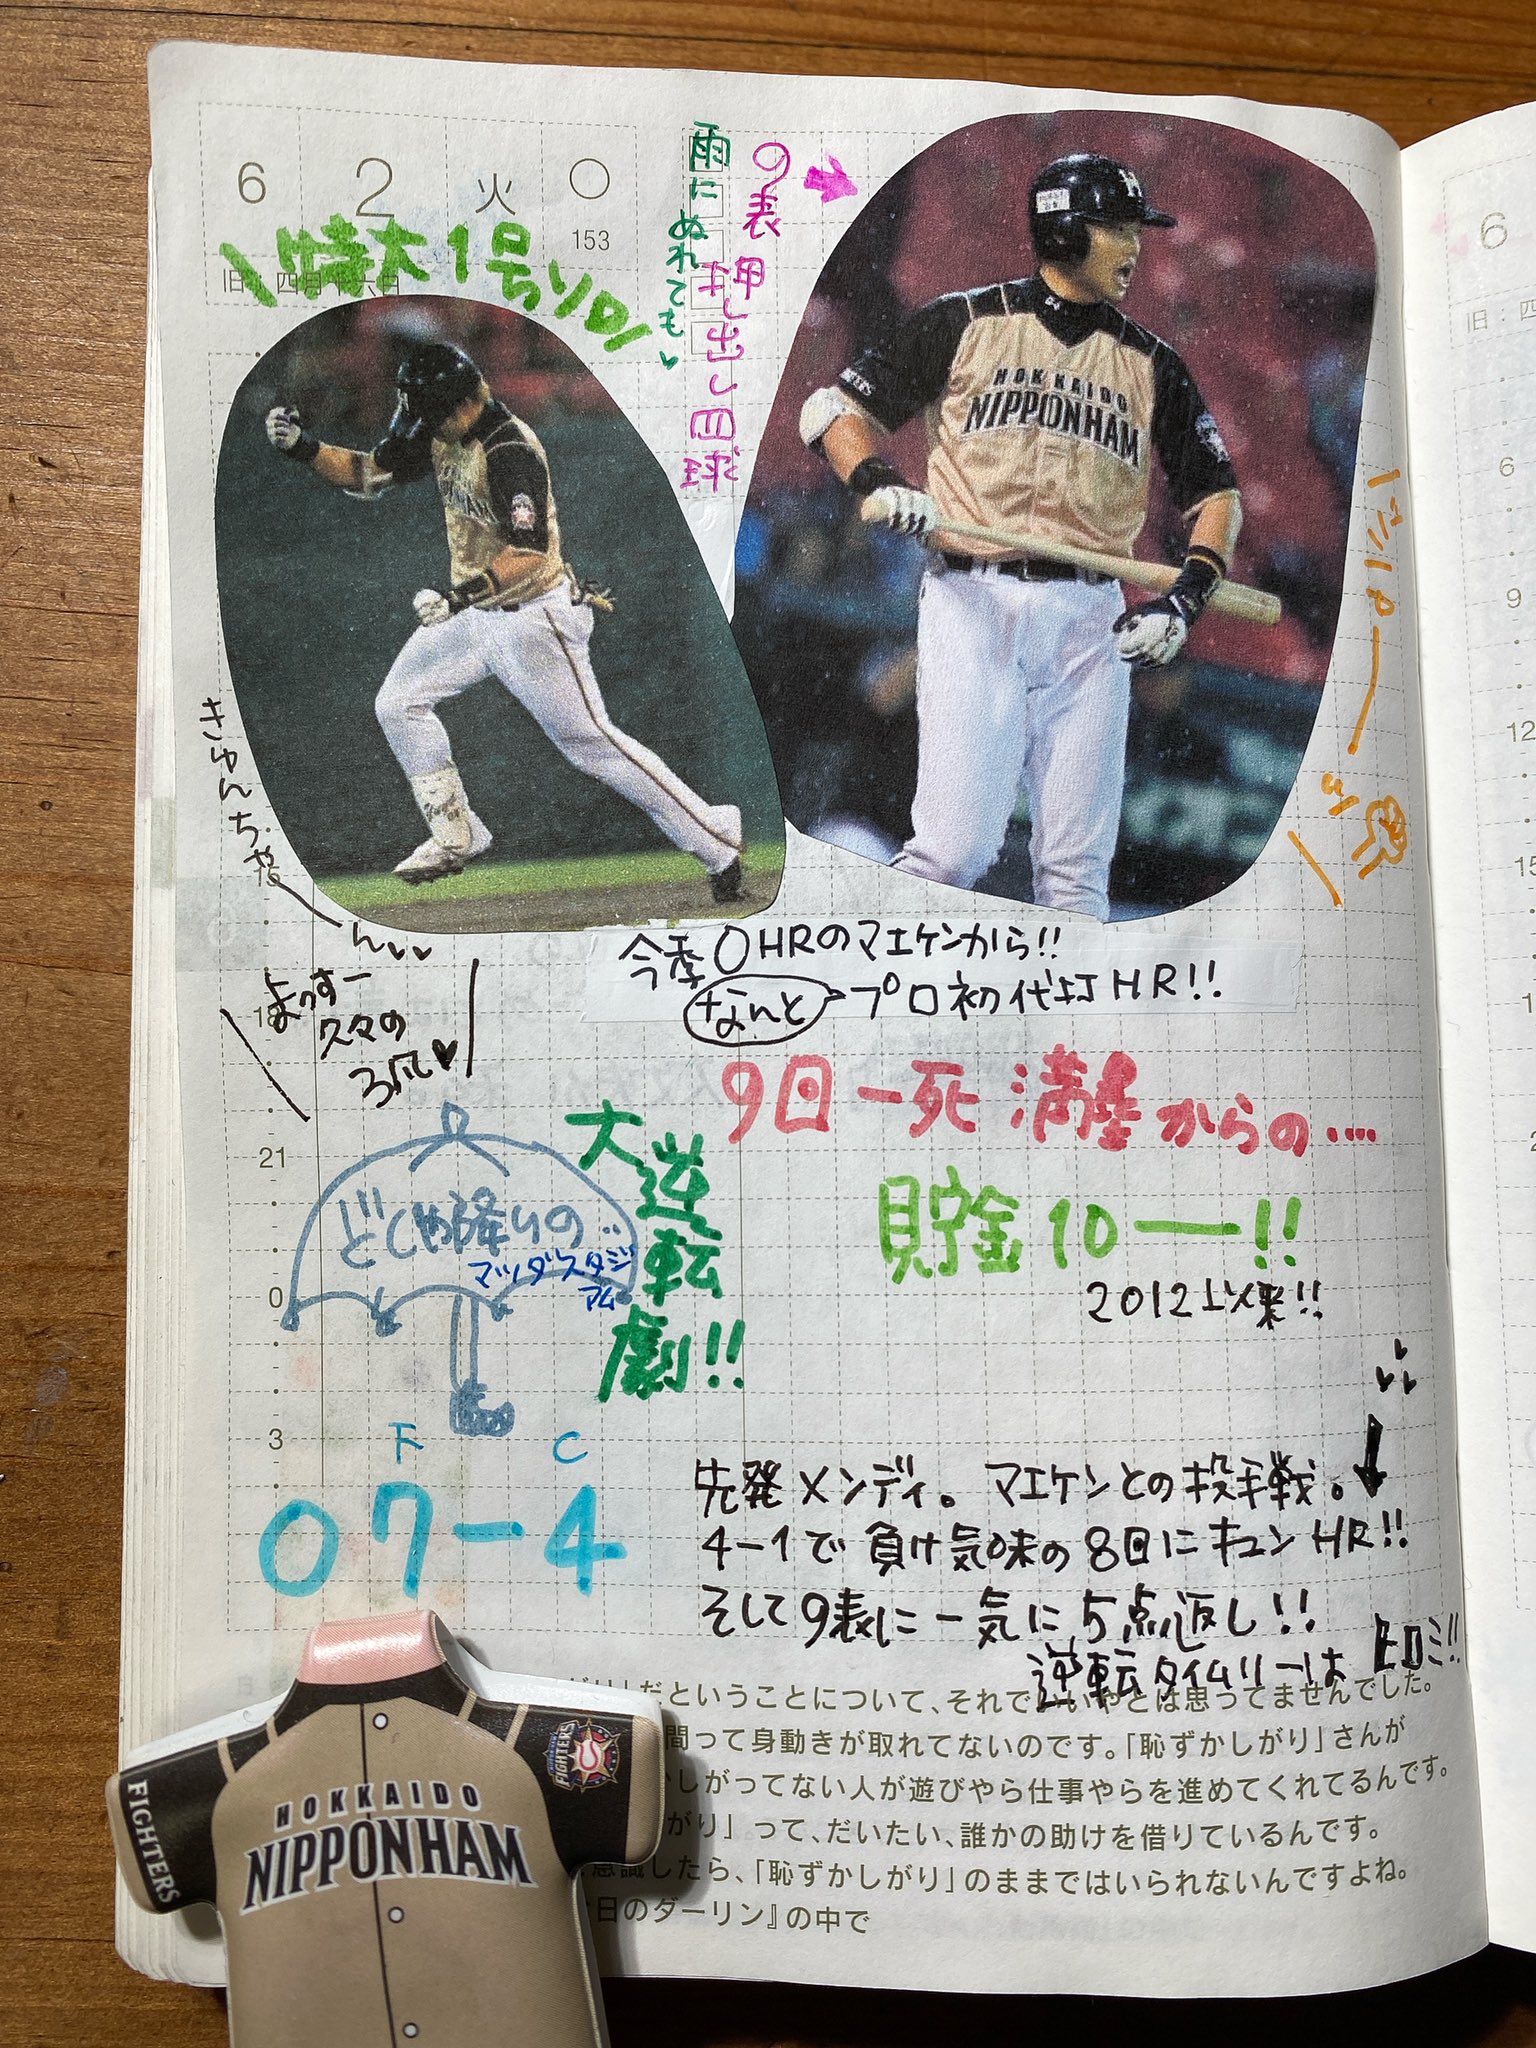 6 2 火 ○
153
旧:四月十六日
特大1号ソロ
雨にぬれても
9表 押し出し四球
HOKKAIDO
NIPPONHAM
きゅんちゃーん
よっすー
久々の
今季0HRのマエケンから!!
なんと プロ初代打HR!!
9回一死満塁からの....
大逆転劇!!
どしゃ降りの…
マツダスタジアム
貯金10ー!!
2012以来!!
F C
○7-4
先発メンディ。マエケンとの投手戦。
4-1で負け気味の8回にキュンHR!!
そして9表に一気に5点返し!!
逆転タイムリーは ヒロミ!!
21
0
3
だということについて、それでいいやとは思ってませんでした。
間って身動きが取れてないのです。「恥ずかしがり」さんが
しがってない人が遊びやら仕事やらを進めてくれてるんです。
がり」って、だいたい、誰かの助けを借りているんです。
意識したら、「恥ずかしがり」のままではいられないんですよね。
日のダーリン』の中で
FIGHTERS
FIGHTERS
HOKKAIDO
NIPPONHAM
6
旧:四
6
9
12
15